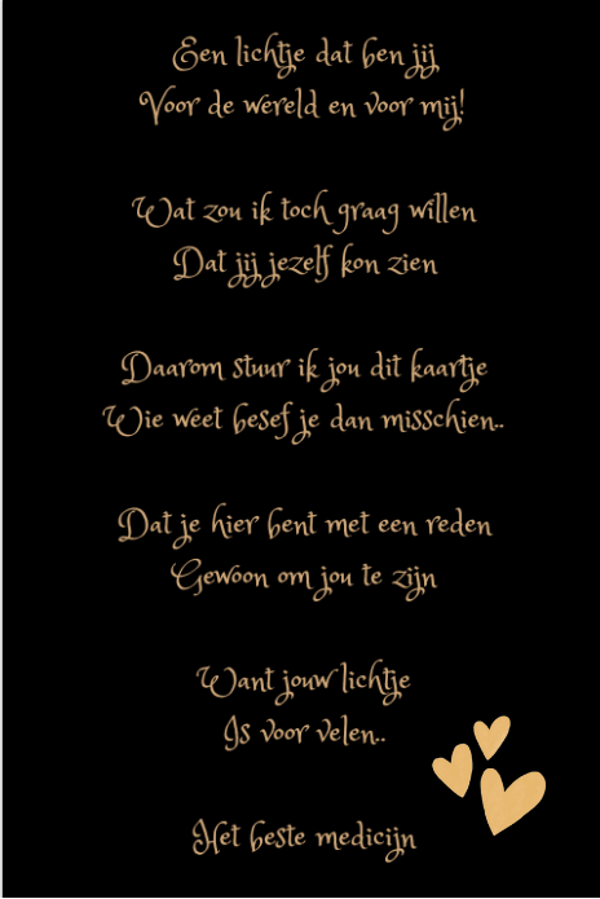 Een lichtje dat ben jij
Voor de wereld en voor mij!
Wat zou ik toch graag willen
Dat jij jezelf kon zien
Daarom stuur ik jou dit kaartje
Wie weet besef je dan misschien..
Dat je hier bent met een reden
Gewoon om jou te zijn
Want jouw lichtje
Is voor velen..
Het beste medicijn